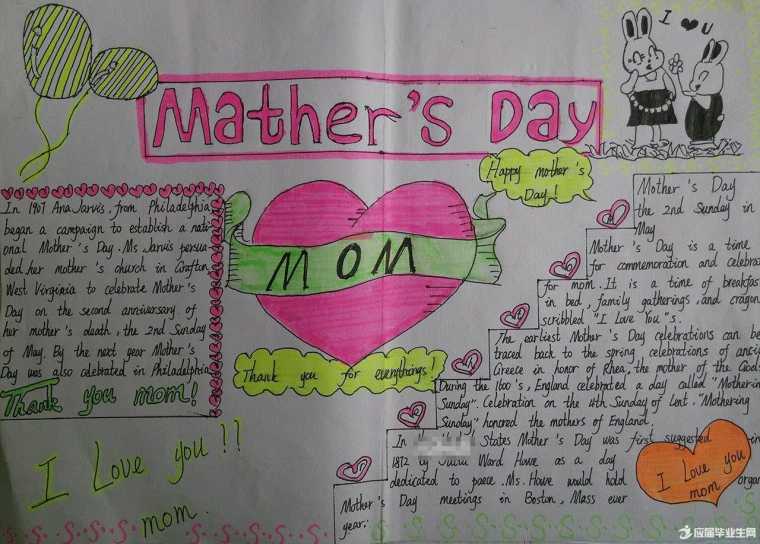 I ❤ U
Mather's Day
Happy mother's
Day!
In 1907 Ana Jarvis, from Philadelphia,
began a campaign to establish a nati
onal Mother's Day. Ms. Jarvis persua
ded her mother's church in Grafton,
West Virginia to celebrate Mother's
Day on the second anniversary of
her mother's death, the 2nd Sunday
of May. By the next year Mother's
Day was also celebrated in Philadelphia.
Thank you mom!
MOM
Thank you for everything!
I Love you!!
mom.
Mother's Day
the 2nd Sunday in
May
Mother's Day is a time
for commemoration and celebra
for mom. It is a time of breakfas
in bed, family gatherings, and crayon
scribbled "I Love You"s.
The earliest Mother's Day celebrations can be
traced back to the spring celebrations of anci
Greece in honor of Rhea, the mother of the Gods
During the 1600's, England celebrated a day called "Mothering
Sunday". Celebration on the 4th Sunday of Lent. "Mothering
Sunday" honored the mothers of England.
In States Mother's Day was first suggested in
1872 by Ward Howe as a day
dedicated to peace. Ms. Howe would hold organ
Mother's Day meetings in Boston, Mass ever
year.
I Love you
mom
应届毕业生网